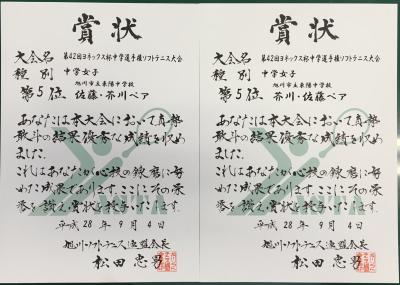 賞状
大会名 第42回ヨネックス杯中学選手権ソフトテニス大会
種別 中学女子
旭川市立東陽中学校
第5位 佐藤・芥川ペア
あなたは本大会において真摯
敢斗の結果優秀な成績を収め
ました
これはあなたが心技の錬磨に努
めた成果であります。ここにその栄
誉を讃え賞状を授与いたします。
平成28年9月4日
旭川ソフトテニス連盟会長
松田忠男
賞状
大会名 第42回ヨネックス杯中学選手権ソフトテニス大会
種別 中学女子
旭川市立東陽中学校
第5位 芥川・佐藤ペア
あなたは本大会において真摯
敢斗の結果優秀な成績を収め
ました
これはあなたが心技の錬磨に努
めた成果であります。ここにその栄
誉を讃え賞状を授与いたします。
平成28年9月4日
旭川ソフトテニス連盟会長
松田忠男